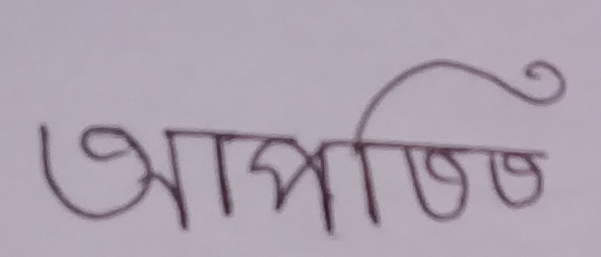 আপত্তি